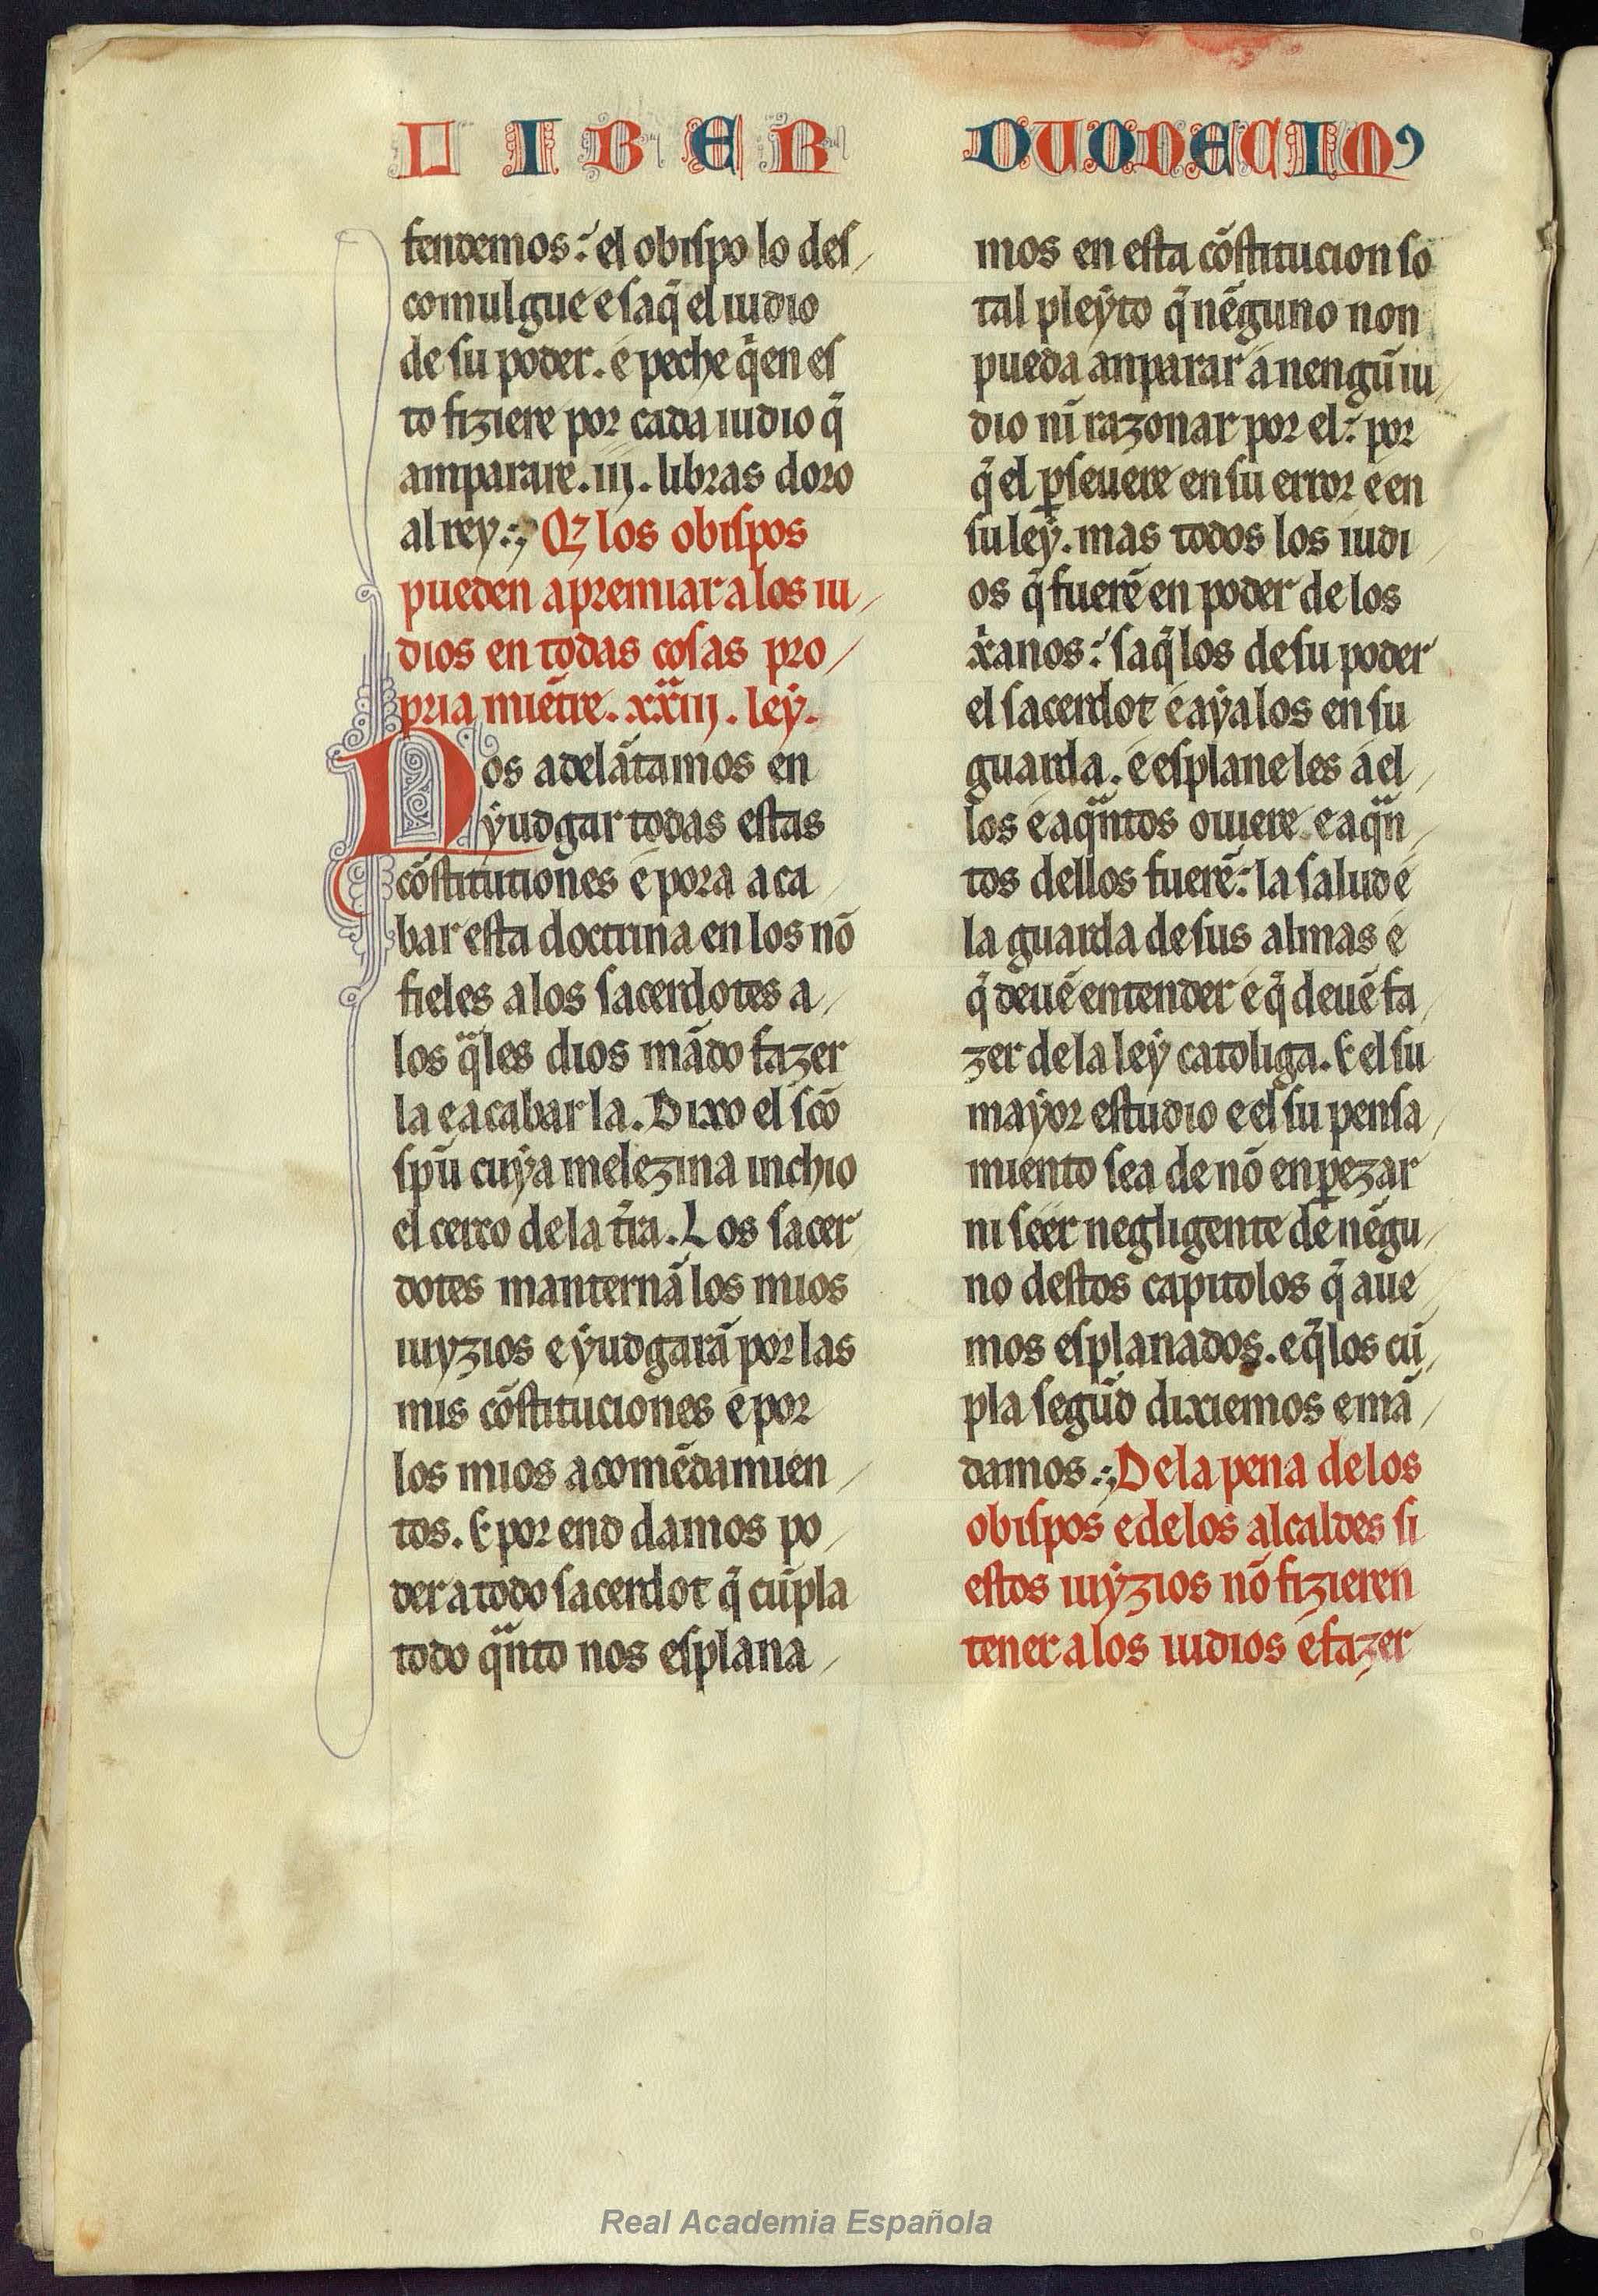 LIBER DUODECIMꝰ
fendemos: el obispo lo des
comulgue e saq̃ el iudio
de su poder. e peche q̃ en es
to fiziere por cada iudio q̃
amparare .iij. libras doro
al rey:; Qȝ los obispos
pueden apremiar a los iu
dios en todas cosas pro
pria miẽtre. xxiij. ley.
Nos adelãtamos en
yudgar todas estas
cõstitutiones e pora aca
bar esta doctrina en los nõ
fieles a los sacerdotes a
los q̃les dios mãdo fazer
la e acabar la. Dixo el sc̃o
sp̃u cuya melezina inchio
el cerco de la tr̃a. Los sacer
dotes manternã los mios
iuyzios e yudgarã por las
mis cõstituciones e por
los mios acomẽdamien
tos. E por end damos po
der a todo sacerdot q̃ cũpla
todo q̃nto nos esplana
mos en esta cõstitucion so
tal pleyto q̃ nẽguno non
pueda anparar a nengũ iu
dio nĩ razonar por el: por
q̃ el ꝑseuere en su error e en
su ley. mas todos los iudi
os q̃ fuerẽ en poder de los
x̃anos: saq̃ los de su poder
el sacerdot e aya los en su
guarda. e esplane les a el
los e a q̃ntos ouiere e a q̃n
tos dellos fuerẽ: la salud e
la guarda de sus almas e
q̃ deuẽ entender e q̃ deuẽ fa
zer de la ley catoliga. E el su
mayor estudio e el su pensa
miento sea de nõ enꝑezar
ni seer negligente de nẽgu
no destos capitolos q̃ aue
mos esplanados. e q̃ los cũ
pla segũd dixiemos e mã
damos:; De la pena de los
obispos e de los alcaldes si
estos iuyzios nõ fizieren
tener a los iudios e fazer
Real Academia Española